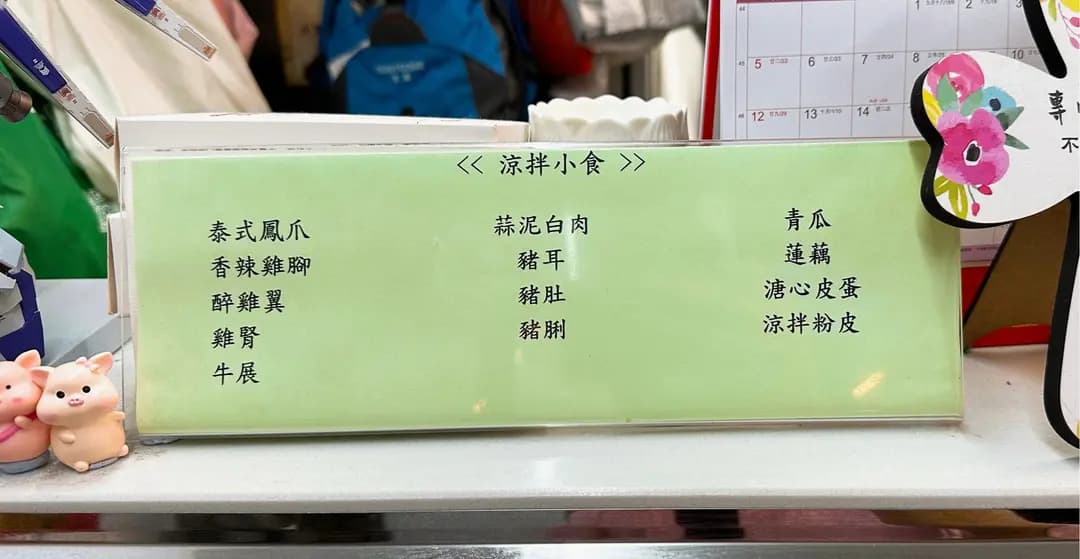 << 涼拌小食 >>
泰式鳳爪
香辣雞腳
醉雞翼
雞腎
牛展
蒜泥白肉
豬耳
豬肚
豬脷
青瓜
蓮藕
溏心皮蛋
涼拌粉皮
1 2 3
5 6 7 8 10
12 13 14
專
不